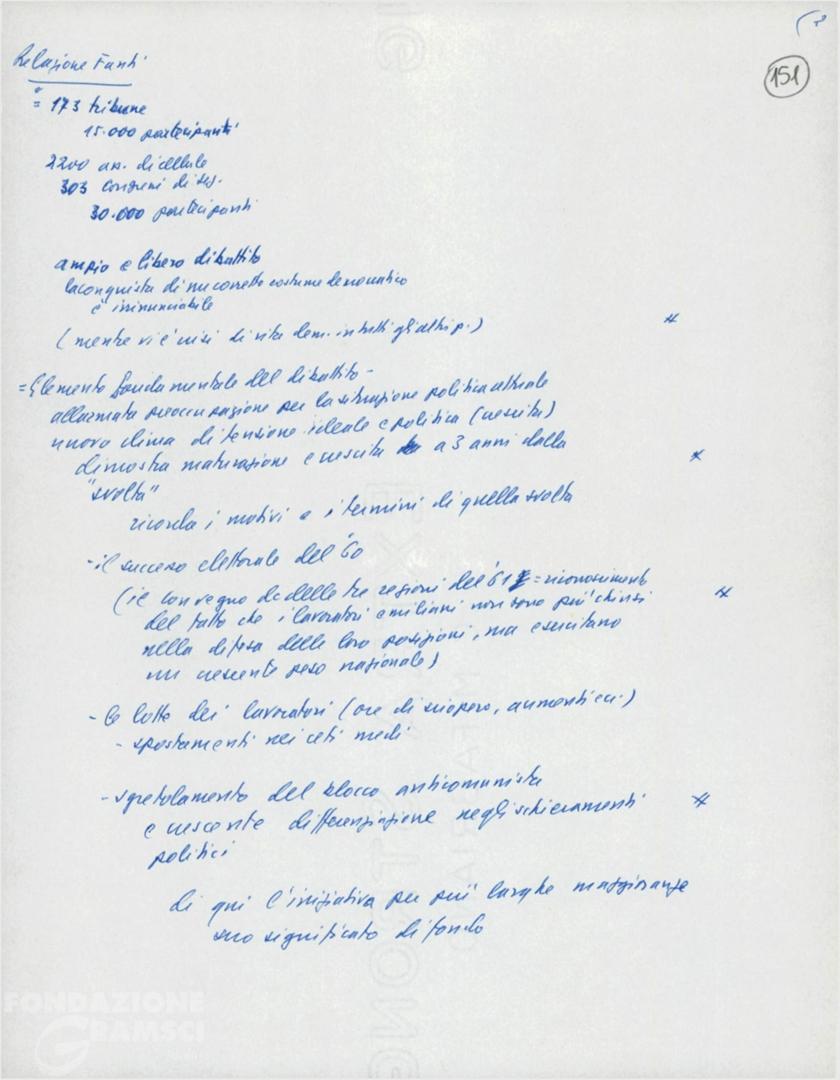 151
Relazione Fanti
= 173 tribune
15.000 partecipanti
2200 ass. di cellule
303 congressi di sez.
30.000 partecipanti
ampio e libero dibattito
la conquista di un corretto costume democratico
è irrinunciabile
(mentre vi è crisi di vita dem. in tutti gli altri p.)
= Elemento fondamentale del dibattito -
allarmata preoccupazione per la situazione politica attuale
nuovo clima di tensione ideale e politica (crescita)
dimostra maturazione e crescita a 3 anni dalla
"svolta"
ricorda i motivi e i termini di quella svolta
- il successo elettorale del '60
(il convegno dc delle tre regioni del '61 = riconoscimento
del fatto che i lavoratori emiliani non sono più chiusi
nella difesa delle loro posizioni, ma esercitano
un crescente peso nazionale)
- le lotte dei lavoratori (ore di sciopero, aumenti ecc.)
- spostamenti nei ceti medi
- sgretolamento del blocco anticomunista
e crescente differenziazione negli schieramenti
politici
di qui l'iniziativa per più larghe maggioranze
suo significato di fondo
FONDAZIONE
GRAMSCI